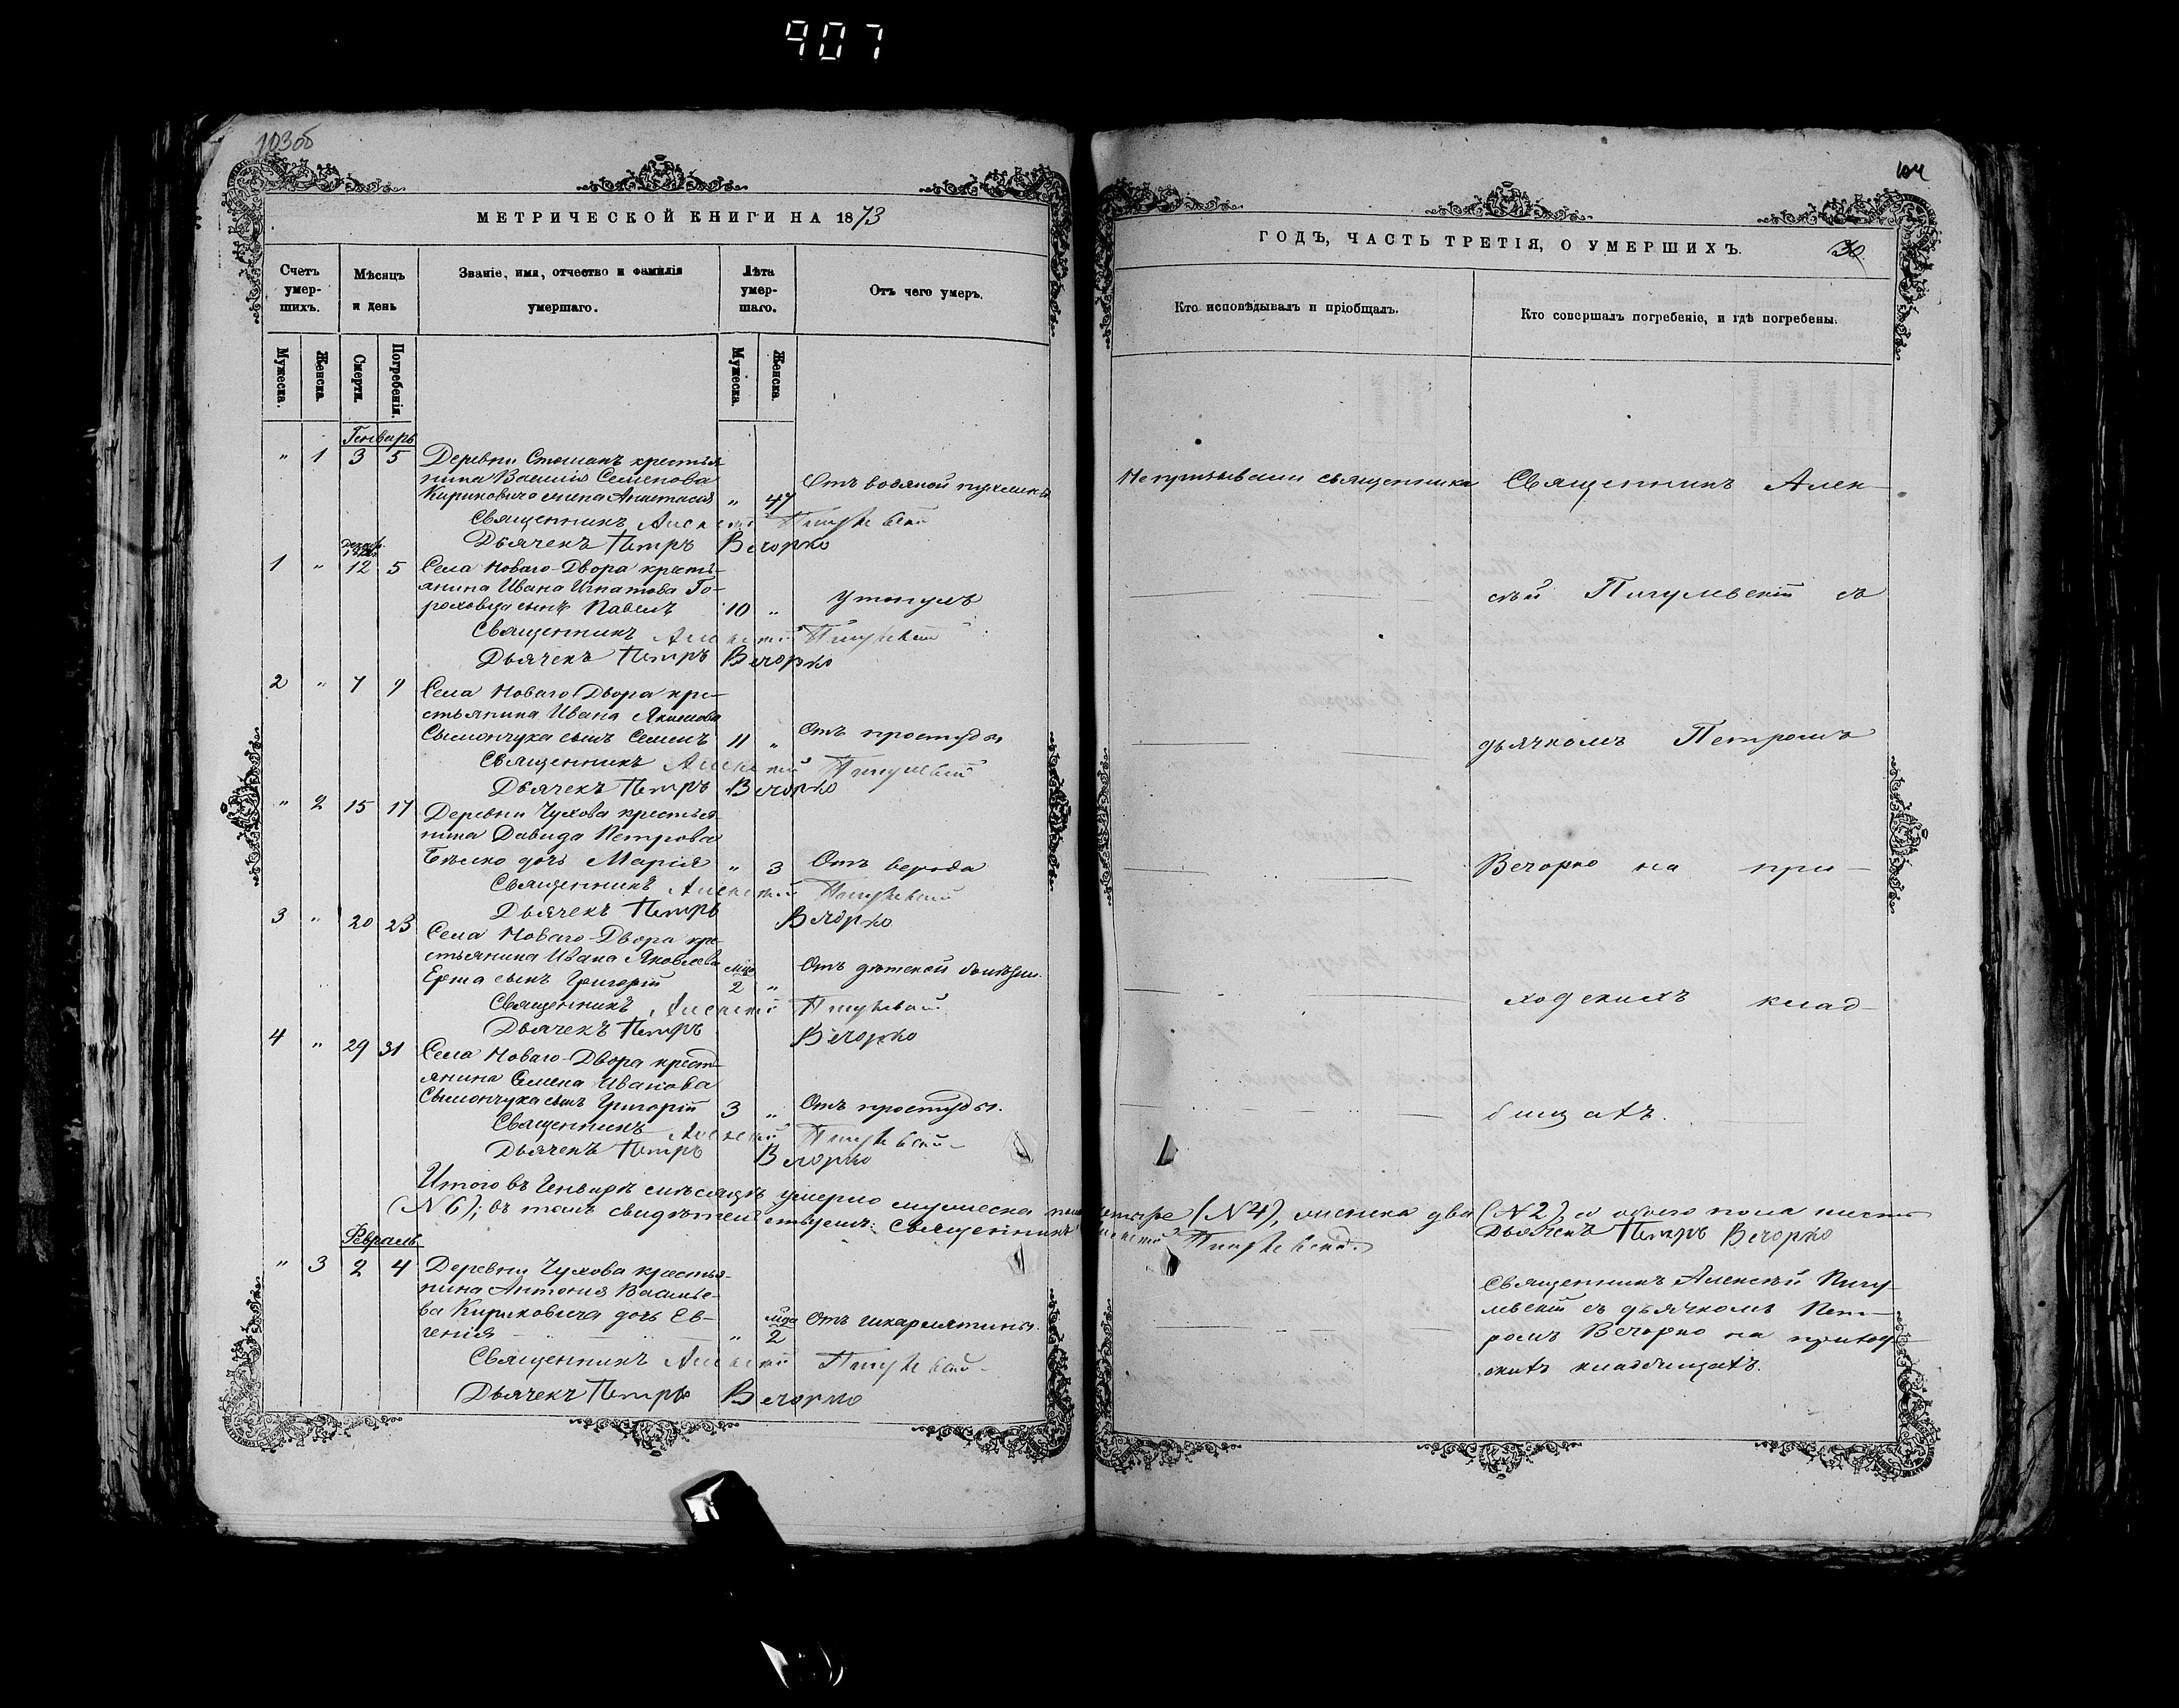 907
103об
МЕТРИЧЕСКОЙ КНИГИ НА 1873
Счетъ умер-шихъ.
Мѣсяцъ и день
Званіе, имя, отчество и фамилія умершаго.
Лѣта умер-шаго.
Отъ чего умеръ.
Мужеска.
Женска.
Смерти.
Погребенія.
Мужеска.
Женска.
Генварь
" 1 3 5 Деревни крестья-
нина Василія Семенова
Кириковича жена Анастасія " 47 Отъ водяной
Священникъ Алексѣй Пигулевскій
Дьячекъ Петръ Вечорко
1 " 12 5 Села Новаго-Двора кресть-
янина Ивана Игнатова Го-
роховца сынъ Павелъ 10 " Утонулъ
Священникъ Алексѣй Пигулевскій
Дьячекъ Петръ Вечорко
2 " 7 9 Села Новаго-Двора кре-
стьянина Ивана Якимова
Сымончука сынъ Семенъ 11 " Отъ простуды
Священникъ Алексѣй Пигулевскій
Дьячекъ Петръ Вечорко
" 2 15 17 Деревни Чухова крестья-
нина Давида Петрова
Бѣлко дочь Марія " 3 Отъ вереда
Священникъ Алексѣй Пигулевскій
Дьячекъ Петръ Вечорко
3 " 20 23 Села Новаго-Двора кре-
стьянина Ивана Яковлева
Ерша сынъ Григорій мѣс. 2 " Отъ дѣтской болѣзни.
Священникъ Алексѣй Пигулевскій
Дьячекъ Петръ Вечорко
4 " 29 31 Села Новаго-Двора крест-
янина Семена Иванова
Сымончука сынъ Григорій 3 " Отъ простуды.
Священникъ Алексѣй Пигулевскій
Дьячекъ Петръ Вечорко
Итого въ Генварѣ мѣсяцѣ умерло мужеска пола
(N 6); въ томъ свидѣтельствуемъ: Священникъ
Февраль
" 3 2 4 Деревни Чухова крестья-
нина Антонія Василье-
ва Кириковича дочь Ев-
генія " 2 Отъ шкарлятины.
Священникъ Алексѣй Пигулевскій
Дьячекъ Петръ Вечорко
104
ГОДЪ, ЧАСТЬ ТРЕТІЯ, О УМЕРШИХЪ.
30
Кто исповѣдывалъ и пріобщалъ.
Кто совершалъ погребеніе, и гдѣ погребены.
Не призывали священника
Священникъ Алек-
сѣй Пигулевскій съ
дьячкомъ Петромъ
Вечорко на при-
ходскихъ клад-
бищахъ.
четыре (N 4), женска два (N 2), а обоего пола шесть
Алексѣй Пигулевскій. Дьячекъ Петръ Вечорко
Священникъ Алексѣй Пигу-
левскій съ дьячкомъ Пет-
ромъ Вечорко на приход-
скихъ кладбищахъ.